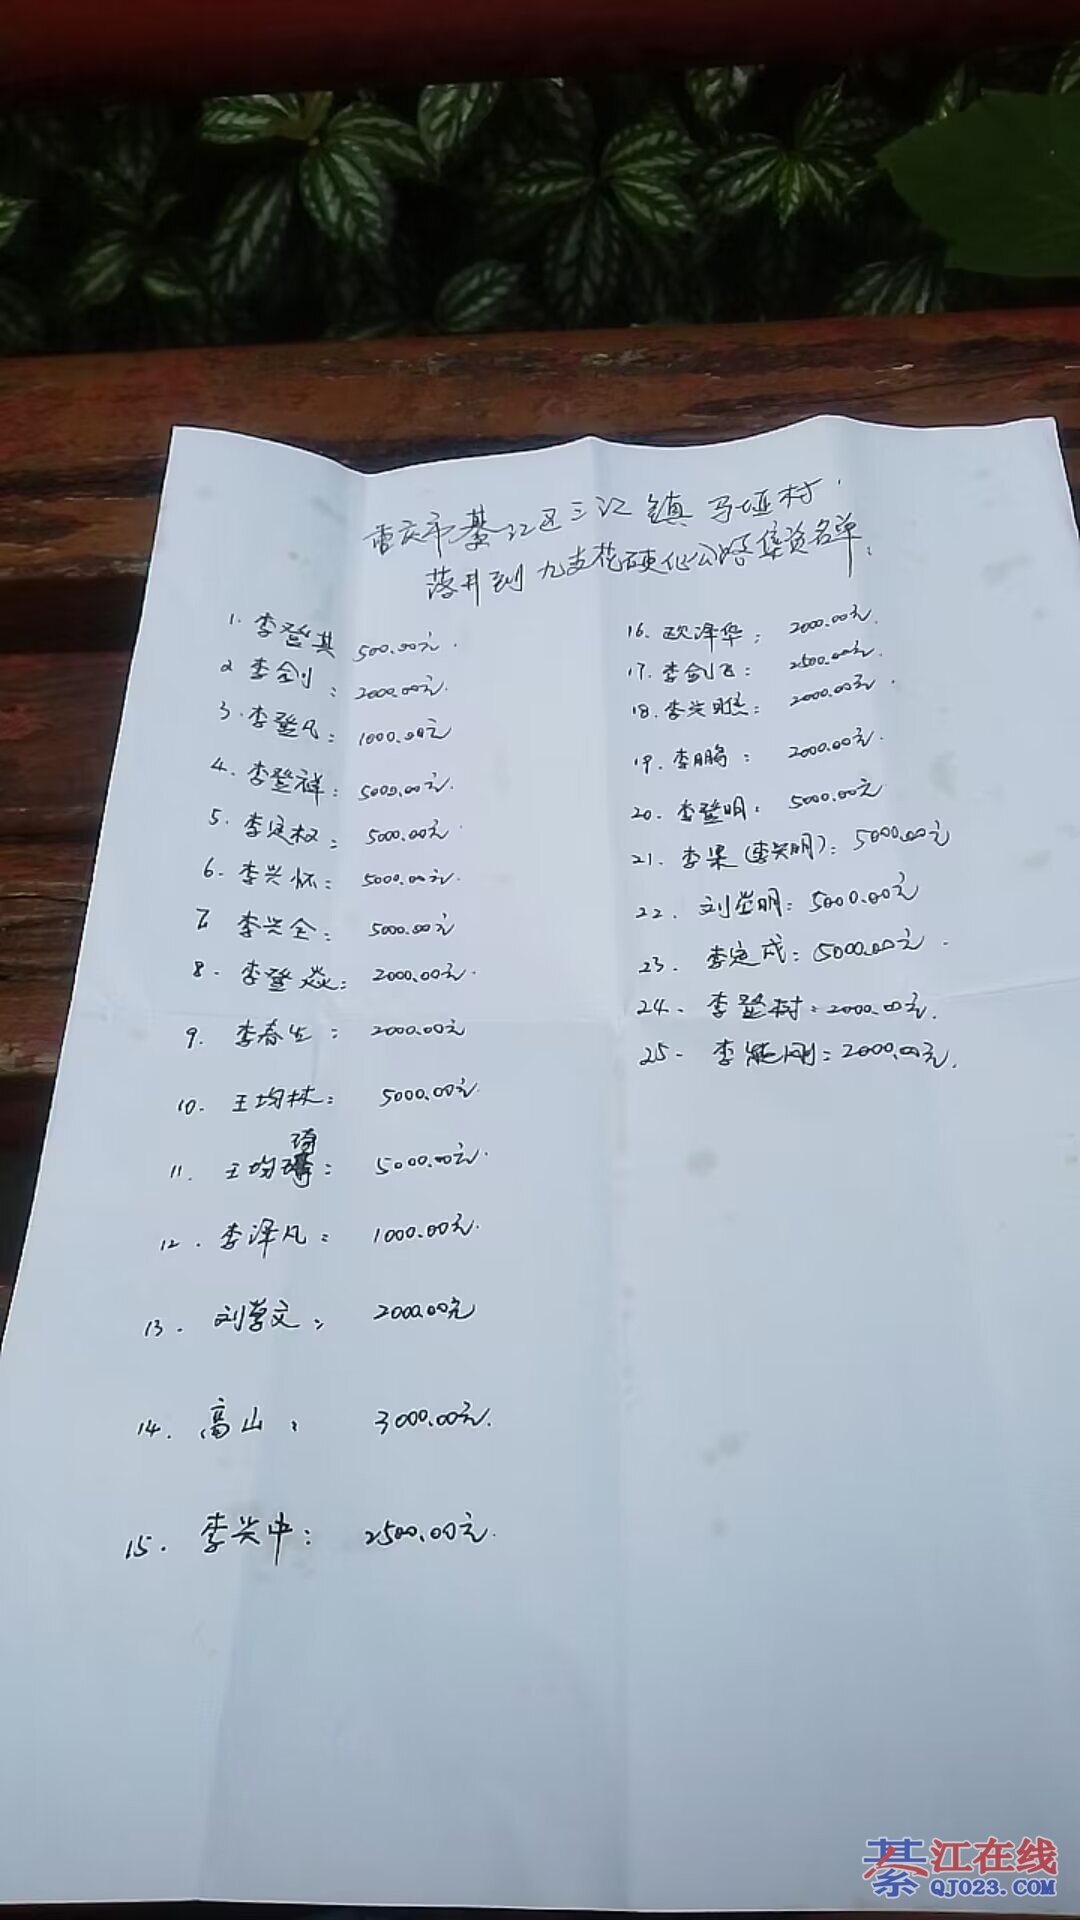 重庆市綦江区三江镇马垭村
落井到九支花硬化公路集资名单:
1. 李登其 500.00元.
2 李剑: 2000.00元.
3. 李登凡: 1000.00元
4. 李登祥: 5000.00元.
5. 李定权: 5000.00元
6. 李兴怀: 5000.00元.
7 李兴全: 5000.00元
8. 李登焱: 2000.00元.
9. 李春生: 2000.00元
10. 王均林: 5000.00元
11. 王均琦: 5000.00元.
12. 李泽凡: 1000.00元.
13. 刘学文: 2000.00元
14. 高山: 3000.00元.
15. 李兴中: 2500.00元.
16. 欧泽华: 2000.00元.
17. 李剑飞: 2500.00元.
18. 李兴胜: 2000.00元.
19. 李鹏: 2000.00元.
20. 李登明: 5000.00元
21. 李果(李兴明): 5000.00元
22. 刘学明: 5000.00元
23. 李定成: 5000.00元.
24. 李登树: 2000.00元.
25. 李能刚: 2000.00元.
綦江在线
QJ023.COM